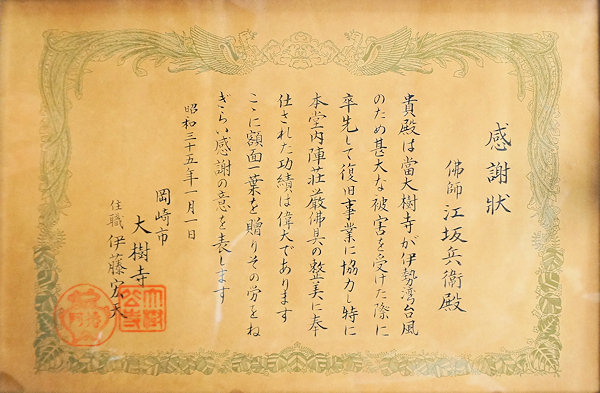 感謝状
佛師 江坂兵衛殿
貴殿は當大樹寺が伊勢湾台風
のため甚大な被害を受けた際に
率先して復旧事業に協力し特に
本堂内陣荘厳佛具の整美に奉
仕された功績は偉大であります
ここに額面一葉を贈りその労をね
ぎらい感謝の意を表します
昭和三十五年一月一日
岡崎市
大樹寺
住職 伊藤宏天